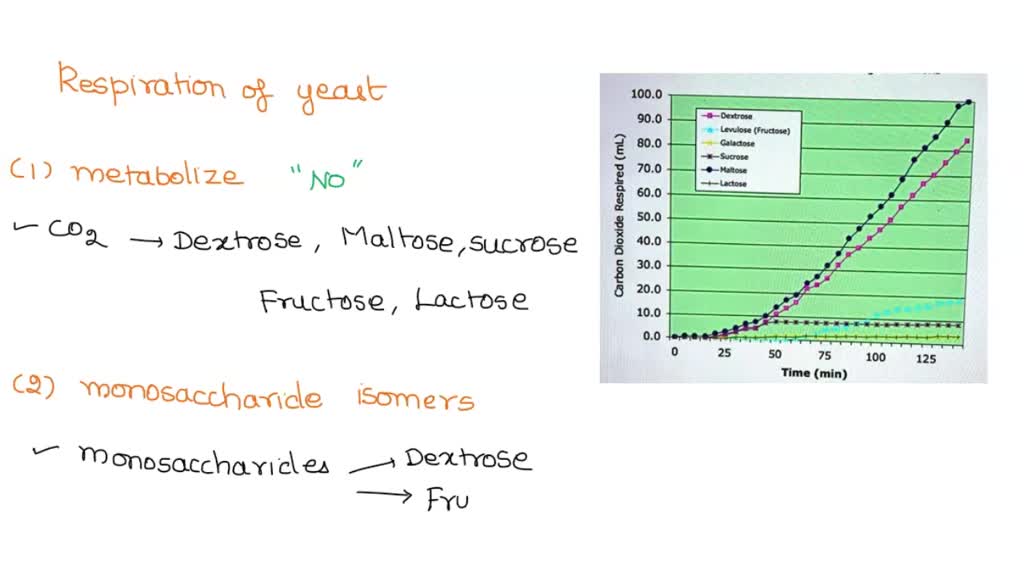 Respiration of yeast
(1) metabolize "NO"
✓ CO2 → Dextrose, Maltose, sucrose
Fructose, Lactose
(2) monosaccharide isomers
✓ monosaccharides → Dextrose
→ Fru
100.0
90.0
80.0
70.0
60.0
50.0
40.0
30.0
20.0
10.0
0.0
Carbon Dioxide Respired (mL)
Dextrose
Levulose (Fructose)
Galactose
Sucrose
Maltose
Lactose
0 25 50 75 100 125
Time (min)